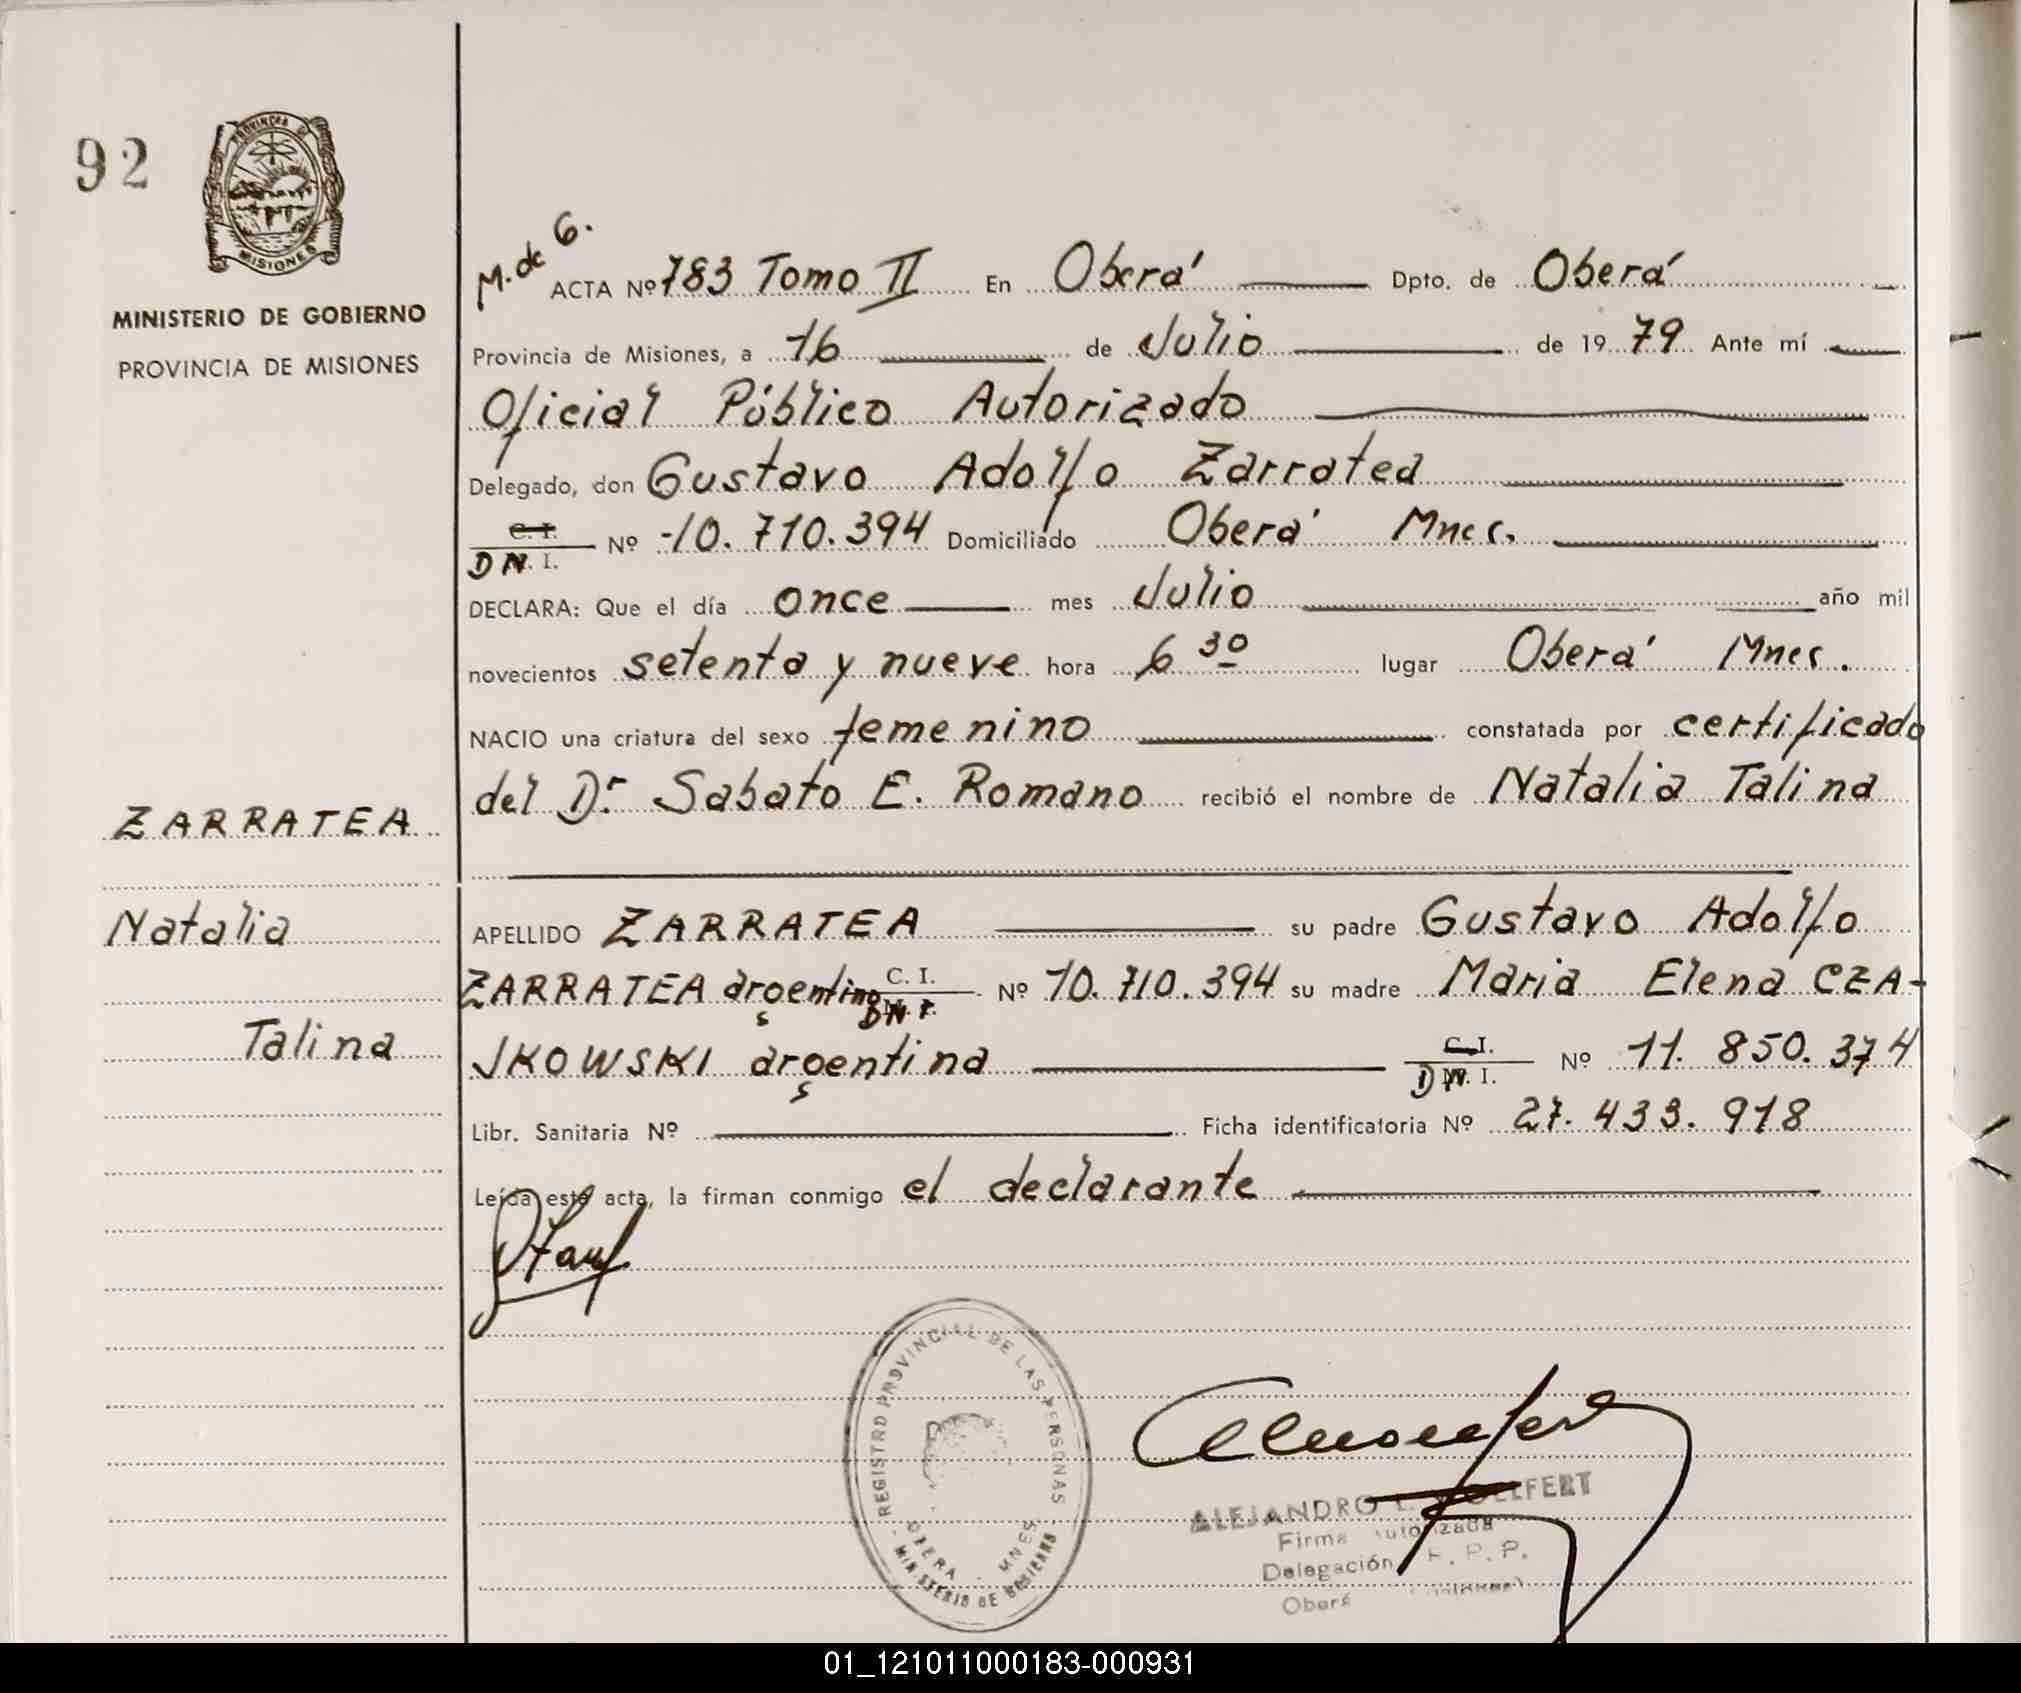 92
PROVINCIA DE
MISIONES
MINISTERIO DE GOBIERNO
PROVINCIA DE MISIONES
M. de G.
ACTA Nº 783 Tomo II En Oberá Dpto. de Oberá
Provincia de Misiones, a 16 de Julio de 1979 Ante mí
Oficial Público Autorizado
Delegado, don Gustavo Adolfo Zarratea
C. I.
D N. I. Nº 10.710.394 Domiciliado Oberá Mnes.
DECLARA: Que el día once mes Julio año mil
novecientos setenta y nueve hora 6 30 lugar Oberá Mnes.
NACIO una criatura del sexo femenino constatada por certificado
del Dr Sabato E. Romano recibió el nombre de Natalia Talina
ZARRATEA
Natalia
Talina
APELLIDO ZARRATEA su padre Gustavo Adolfo
ZARRATEA argentino C. I.
D N. I. Nº 10.710.394 su madre Maria Elena CZA-
JKOWSKI argentina C. I.
D N. I. Nº 11.850.374
Libr. Sanitaria Nº Ficha identificatoria Nº 27.433.918
Leída este acta, la firman conmigo el declarante
REGISTRO PROVINCIAL DE LAS PERSONAS
OBERA - MNES
MINISTERIO DE GOBIERNO
ALEJANDRO L.
Firma Autorizada
Delegación R. P. P.
Oberá (Misiones)
01_121011000183-000931